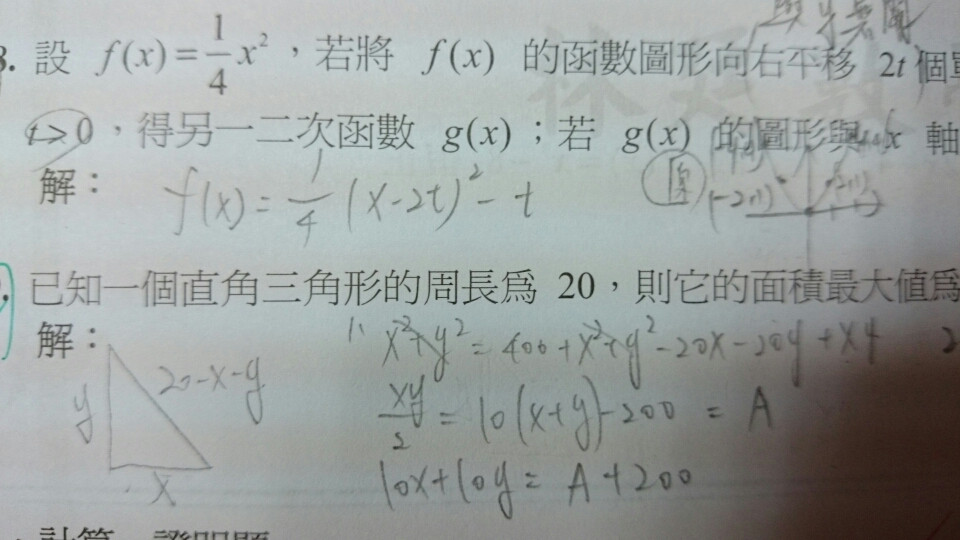 設 f(x) = 1/4 x²，若將 f(x) 的函數圖形向右平移 2t 個
t > 0，得另一二次函數 g(x)；若 g(x) 的圖形與 x 軸
解：
f(x) = 1/4 (x-2t)² - t
(-2,1)
已知一個直角三角形的周長為 20，則它的面積最大值為
解：
x²+y² = 400+x²+y²-20x-20y+xy
y
20-x-y
x
xy/2 = 10(x+y)-200 = A
10x+10y = A+200